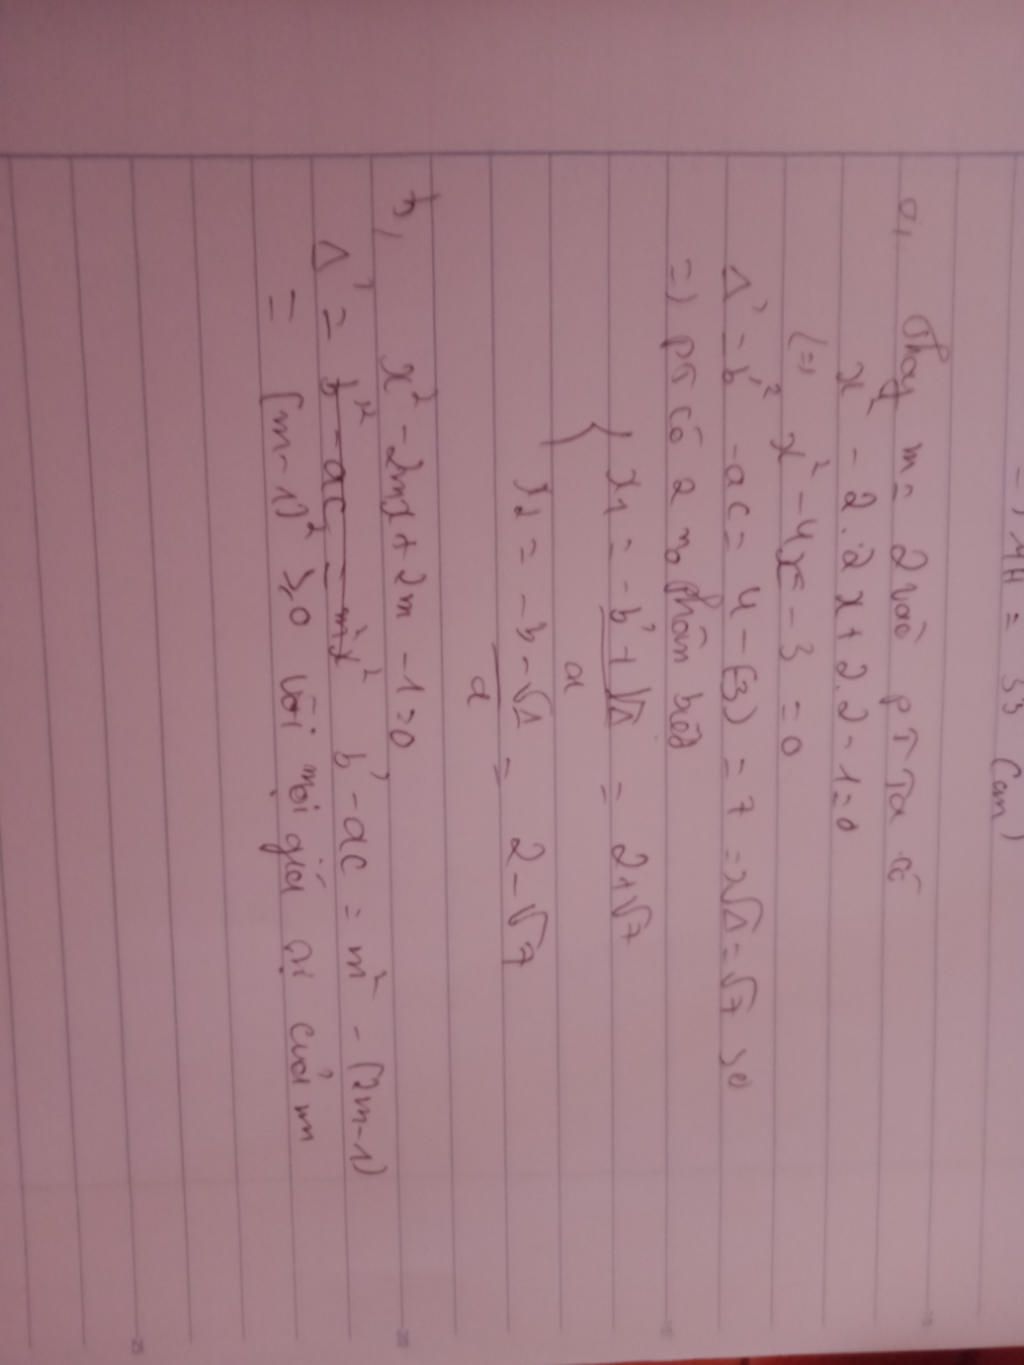 =) MH = 33 (cm)
a, Thay m = 2 vào pT Ta có
x² - 2.2x + 2.2 - 1 = 0
(=) x² - 4x - 3 = 0
Δ' = b'² - ac = 4 - (-3) = 7 => √Δ = √7 > 0
=) pT có 2 no phân biệt
{ x1 = -b' + √Δ / a = 2+√7
x2 = -b - √Δ / a = 2 - √7
b, x² - 2mx + 2m - 1 = 0
Δ' = b'² - ac = m²x² b' - ac = m² - (2m - 1)
= (m - 1)² ≥ 0 với mọi giá trị của m
20
25